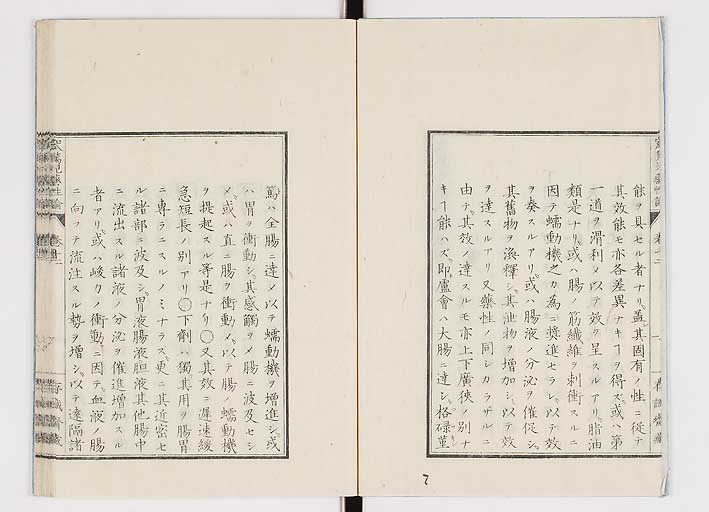 能ヲ具セル者ナリ、蓋其固有ノ性ニ従テ
其效能モ亦各差異ナキヿヲ得ズ、或ハ第
一道ヲ滑利メ以テ效ヲ呈スルアリ、脂油
類是ナリ、或ハ腸ノ筋繊維ヲ刺衝スルニ
因テ蠕動機之カ為ニ奨進セラレ、以テ效
ヲ奏スルアリ、或ハ腸液ノ分泌ヲ催促シ、
其舊物ヲ渙釋シ、其泄物ヲ増加シ、以テ效
ヲ達スルアリ又藥性ノ同シカラザルニ
由テ、其效ノ達スルモ亦上下廣狹ノ別ナ
キヿ能ハズ、即盧會ハ大腸ニ達シ、格碌菫
篤ハ全腸ニ達メ以テ蠕動機ヲ増進シ、或
ハ胃ヲ衝動シ、其感觸ヲメ腸ニ波及セシ
メ、或ハ直ニ腸ヲ衝動メ、以テ腸ノ蠕動機
ヲ提起スル等是ナリ〇又其效ニ遲速緩
急短長ノ別アリ〇下劑ハ獨其用ヲ腸胃
ニ專ラニスルノミナラス、更ニ其近密セ
ル諸部ニ波及シ、胃液腸液胆液其他腸中
ニ流出スル諸液ノ分泌ヲ催進増加スル
者アリ、或ハ峻力ノ衝動ニ因テ、血液ノ腸
ニ向フテ流注スル勢ヲ増シ、以テ遠隔諸
卷十二
存誠齋藏
7